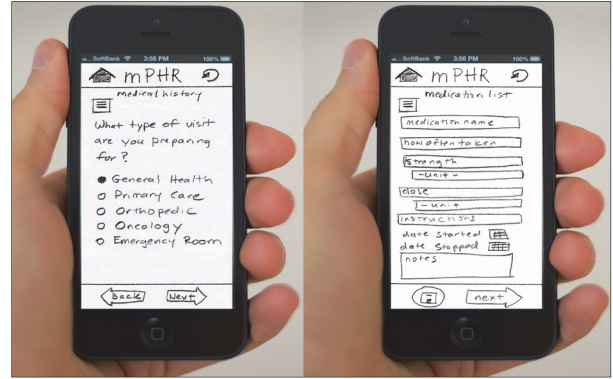 SoftBank 3:56 PM 100%
mPHR
medical history
What type of visit
are you preparing
for?
General Health
Primary Care
Orthopedic
Oncology
Emergency Room
Back Next
SoftBank 3:56 PM 100%
mPHR
medication list
medication name
how often taken
strength
-unit-
dose
-unit-
instructions
date started
date stopped
notes
next